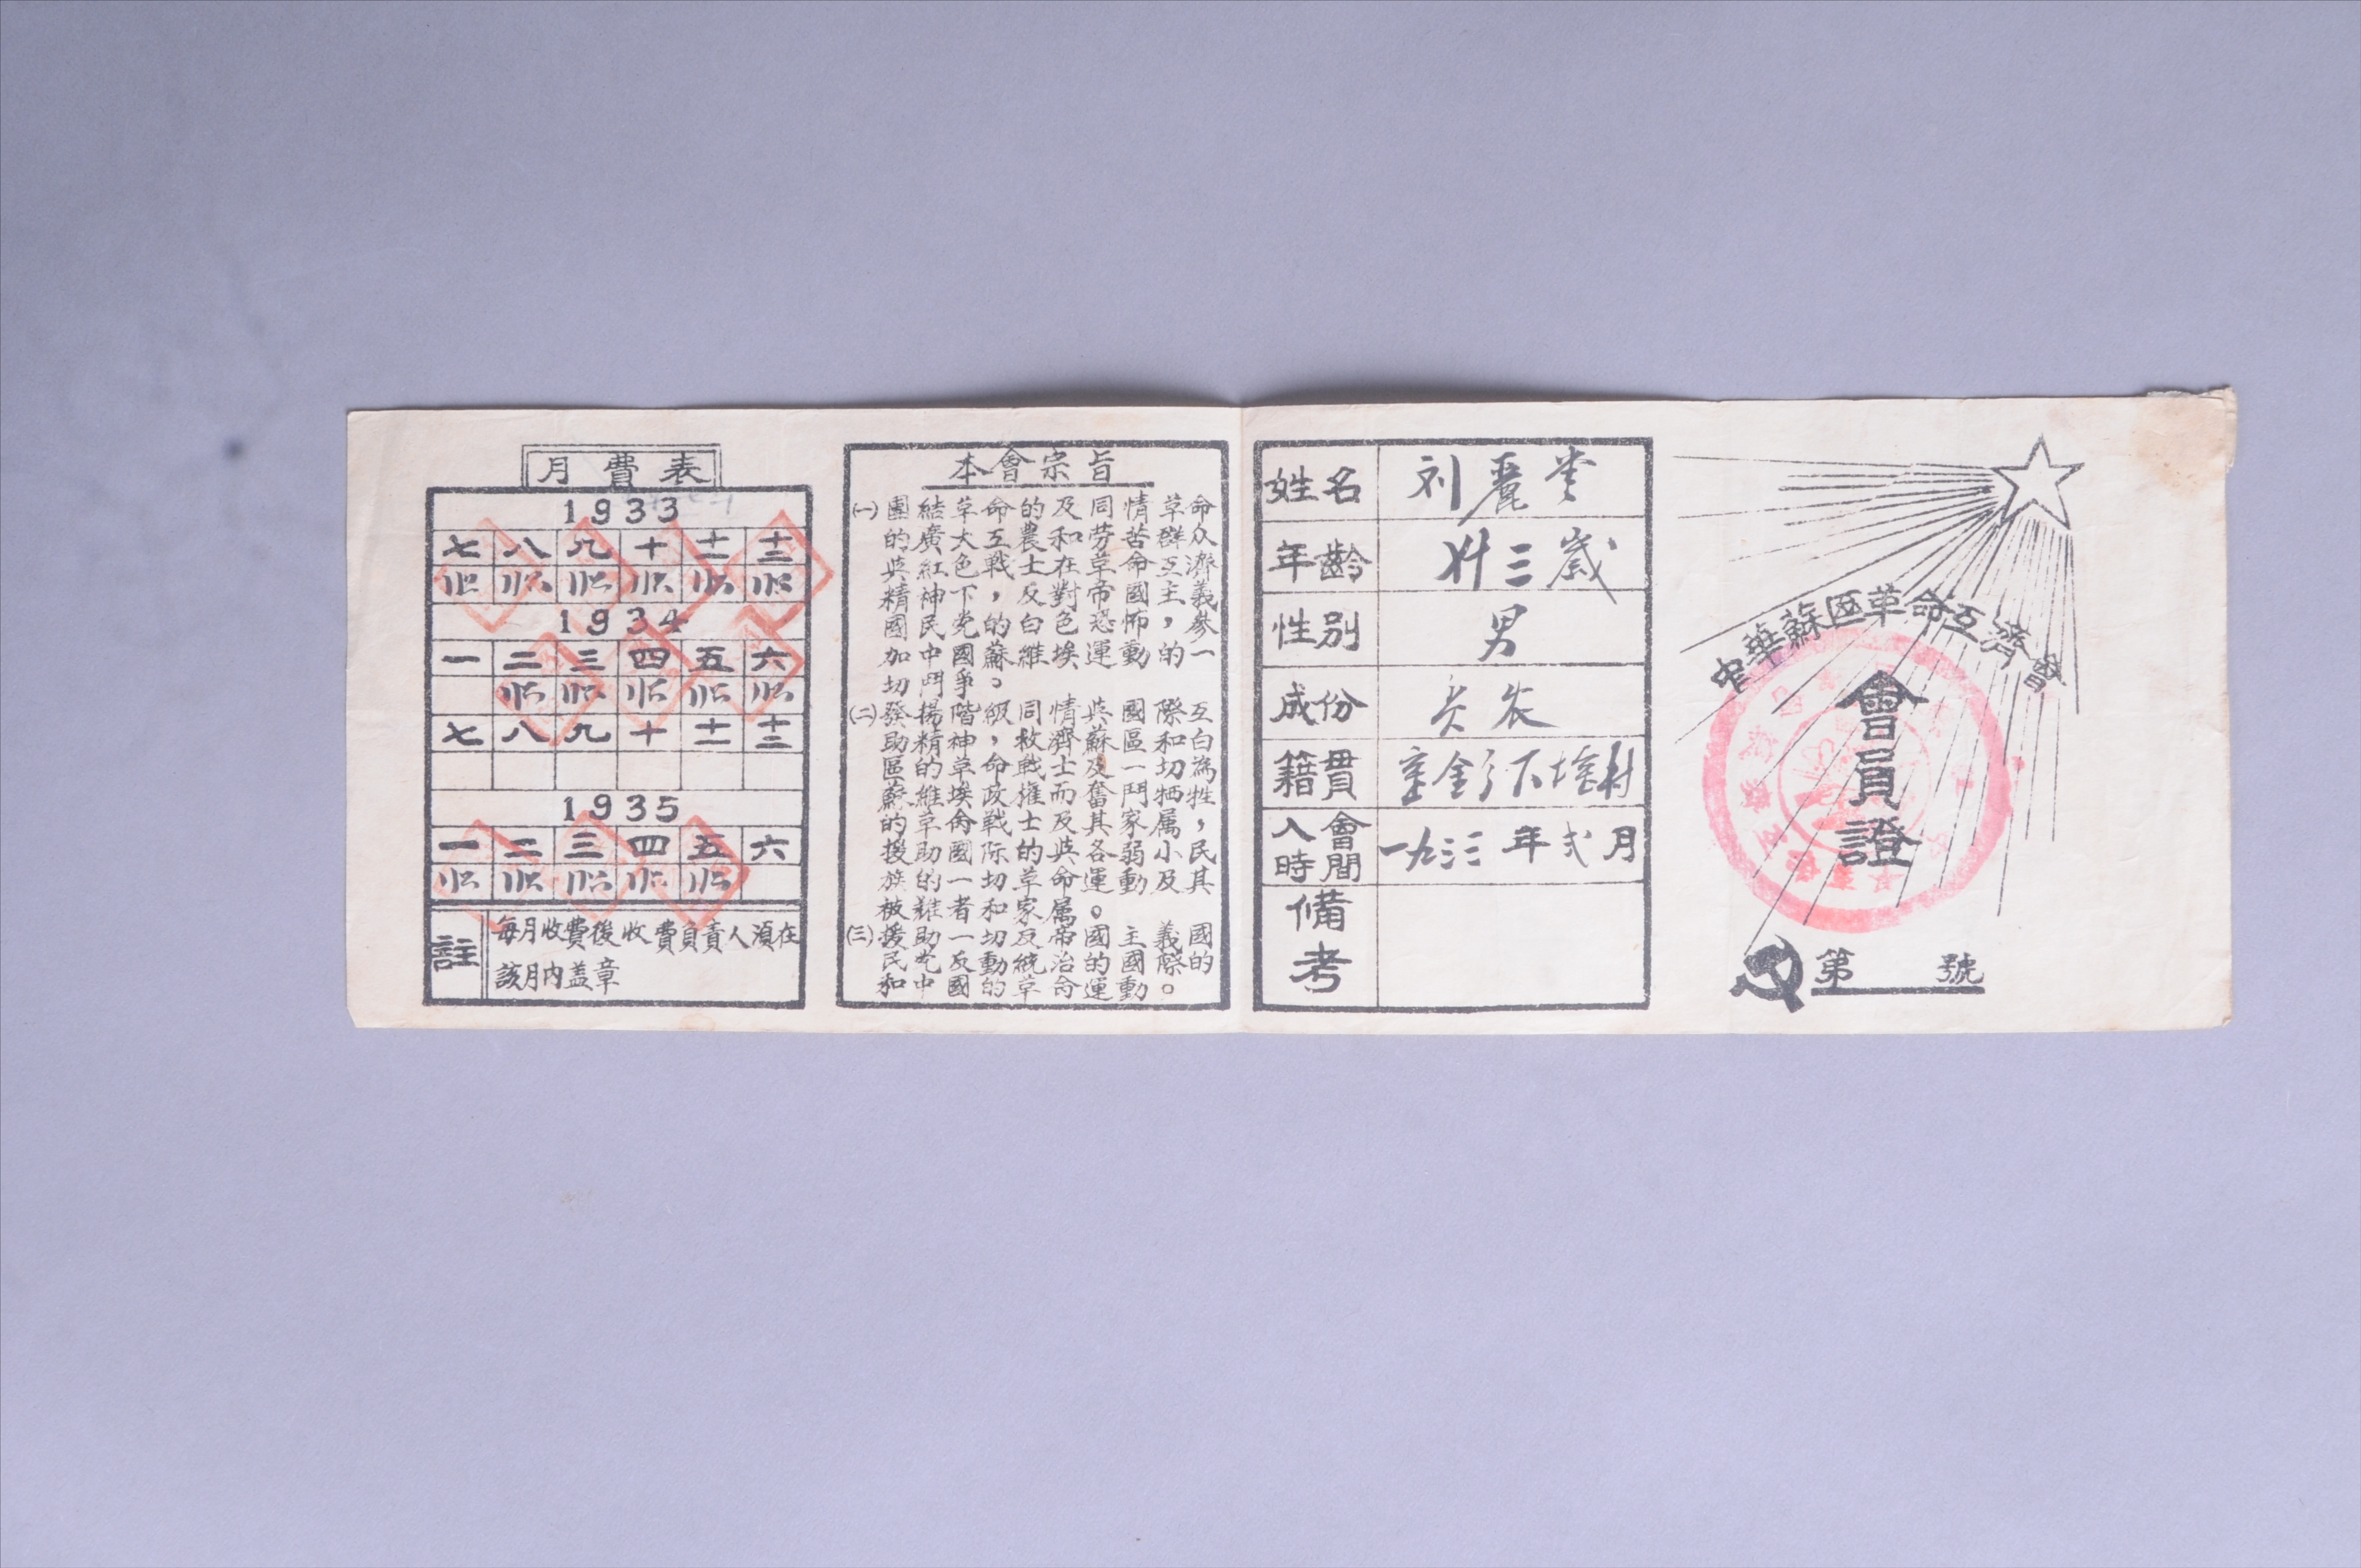 中華蘇區革命互濟會
會員證
第 號
姓名 刘
年齡 廾三歲
性別 男
成份
籍貫
入會時間 一九三三年弍月
備考
本會宗旨
(一) 團結草命的及同情草命
的廣大互農和勞苦群众
與紅色戰士在草命互濟
精神下，反對帝國主義
國民党的白色恐怖，參
加中國蘇維埃運動的一
切鬥爭。
(二) 發揚階級同情與國際互
助精神，救濟蘇區和白
區的草命戰士及一切為
蘇維埃政權而奮鬥牺牲
的草命戰士及其家属，
援助國际的與各弱小民
族的一切草命運動及其
被難者和家属。
(三) 援助一切反帝國主義國
民党反動統治的國際的
和中國的草命運動。
月費表
1933
七 八 九 十 十一 十二
1934
一 二 三 四 五 六
七 八 九 十 十一 十二
1935
一 二 三 四 五 六
註
每月收費後收費負責人湏在
該月内盖章